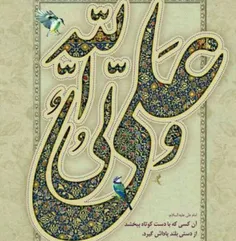 علی ولی الله
امام علی علیه السلام:
آن کسی که با دست کوتاه ببخشد
از دستی بلند پاداش گیرد.